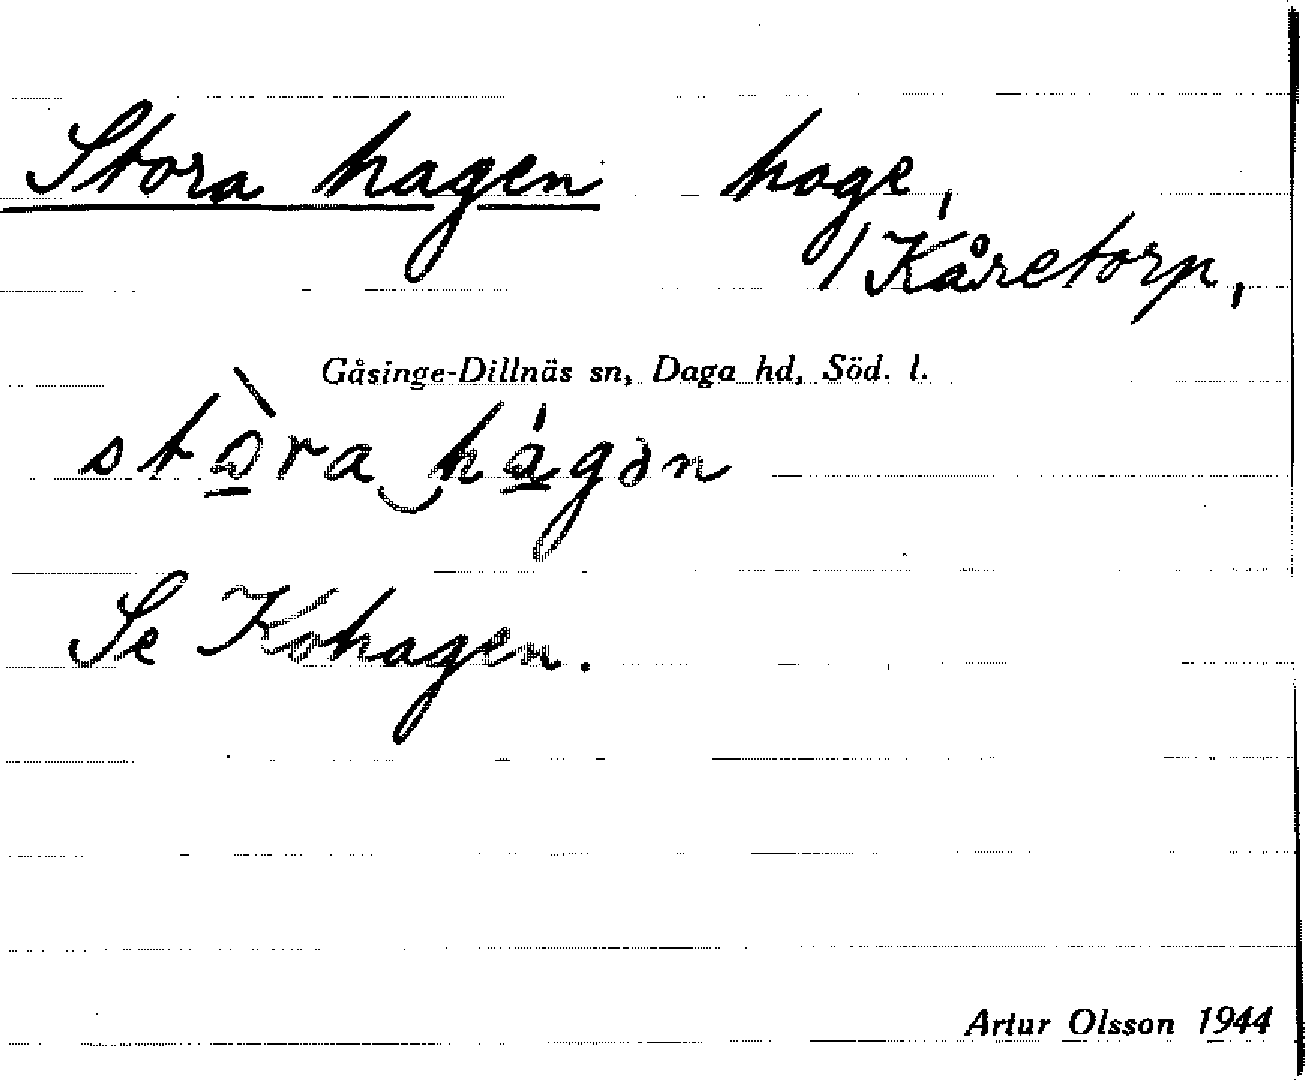 Stora hagen hage,
/Kåretorp,
Gåsinge-Dillnäs sn, Daga hd, Söd. l.
stɔ̠̀ra‿há̠gən
Se Kohagen.
Artur Olsson 1944